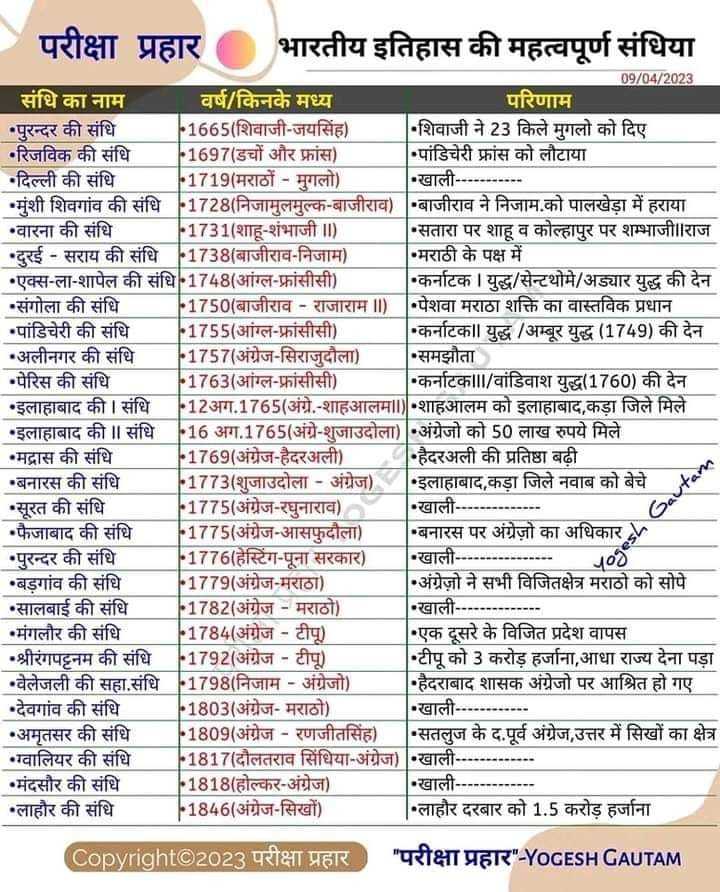 परीक्षा प्रहार भारतीय इतिहास की महत्वपूर्ण संधिया
09/04/2023
संधि का नाम वर्ष/किनके मध्य परिणाम
•पुरन्दर की संधि •1665(शिवाजी-जयसिंह) •शिवाजी ने 23 किले मुगलो को दिए
•रिजविक की संधि •1697(डचों और फ्रांस) •पांडिचेरी फ्रांस को लौटाया
•दिल्ली की संधि •1719(मराठों - मुगलो) •खाली-----------
•मुंशी शिवगांव की संधि •1728(निजामुलमुल्क-बाजीराव) •बाजीराव ने निजाम.को पालखेड़ा में हराया
•वारना की संधि •1731(शाहू-शंभाजी II) •सतारा पर शाहू व कोल्हापुर पर शम्भाजीIIराज
•दुरई - सराय की संधि •1738(बाजीराव-निजाम) •मराठी के पक्ष में
•एक्स-ला-शापेल की संधि •1748(आंग्ल-फ्रांसीसी) •कर्नाटक I युद्ध/सेन्टथोमे/अड्यार युद्ध की देन
•संगोला की संधि •1750(बाजीराव - राजाराम II) •पेशवा मराठा शक्ति का वास्तविक प्रधान
•पांडिचेरी की संधि •1755(आंग्ल-फ्रांसीसी) •कर्नाटकII युद्ध /अम्बूर युद्ध (1749) की देन
•अलीनगर की संधि •1757(अंग्रेज-सिराजुदौला) •समझौता
•पेरिस की संधि •1763(आंग्ल-फ्रांसीसी) •कर्नाटकIII/वांडिवाश युद्ध(1760) की देन
•इलाहाबाद की I संधि •12अग.1765(अंग्रे.-शाहआलमII) •शाहआलम को इलाहाबाद,कड़ा जिले मिले
•इलाहाबाद की II संधि •16 अग.1765(अंग्रे-शुजाउदोला) •अंग्रेजो को 50 लाख रुपये मिले
•मद्रास की संधि •1769(अंग्रेज-हैदरअली) •हैदरअली की प्रतिष्ठा बढ़ी
•बनारस की संधि •1773(शुजाउदोला - अंग्रेज) •इलाहाबाद,कड़ा जिले नवाब को बेचे
•सूरत की संधि •1775(अंग्रेज-रघुनाराव) •खाली-----------------
•फैजाबाद की संधि •1775(अंग्रेज-आसफुदौला) •बनारस पर अंग्रेज़ो का अधिकार
Yogesh Gautam
•पुरन्दर की संधि •1776(हेस्टिंग-पूना सरकार) •खाली----------------
•बड़गांव की संधि •1779(अंग्रेज-मराठा) •अंग्रेज़ो ने सभी विजितक्षेत्र मराठो को सोपे
•सालबाई की संधि •1782(अंग्रेज - मराठो) •खाली--------------
•मंगलौर की संधि •1784(अंग्रेज - टीपू) •एक दूसरे के विजित प्रदेश वापस
•श्रीरंगपट्टनम की संधि •1792(अंग्रेज - टीपू) •टीपू को 3 करोड़ हर्जाना,आधा राज्य देना पड़ा
•वेलेजली की सहा.संधि •1798(निजाम - अंग्रेजो) •हैदराबाद शासक अंग्रेजो पर आश्रित हो गए
•देवगांव की संधि •1803(अंग्रेज- मराठो) •खाली------------
•अमृतसर की संधि •1809(अंग्रेज - रणजीतसिंह) •सतलुज के द.पूर्व अंग्रेज,उत्तर में सिखों का क्षेत्र
•ग्वालियर की संधि •1817(दौलतराव सिंधिया-अंग्रेज) •खाली-------------
•मंदसौर की संधि •1818(होल्कर-अंग्रेज) •खाली-------------
•लाहौर की संधि •1846(अंग्रेज-सिखों) •लाहौर दरबार को 1.5 करोड़ हर्जाना
Copyright©2023 परीक्षा प्रहार "परीक्षा प्रहार"-YOGESH GAUTAM